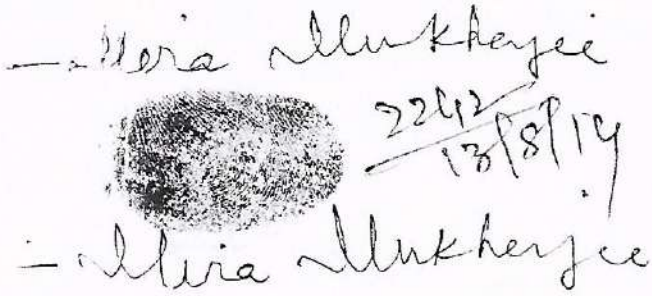 – Mira Mukherjee
2242
13/8/14
– Mira Mukherjee